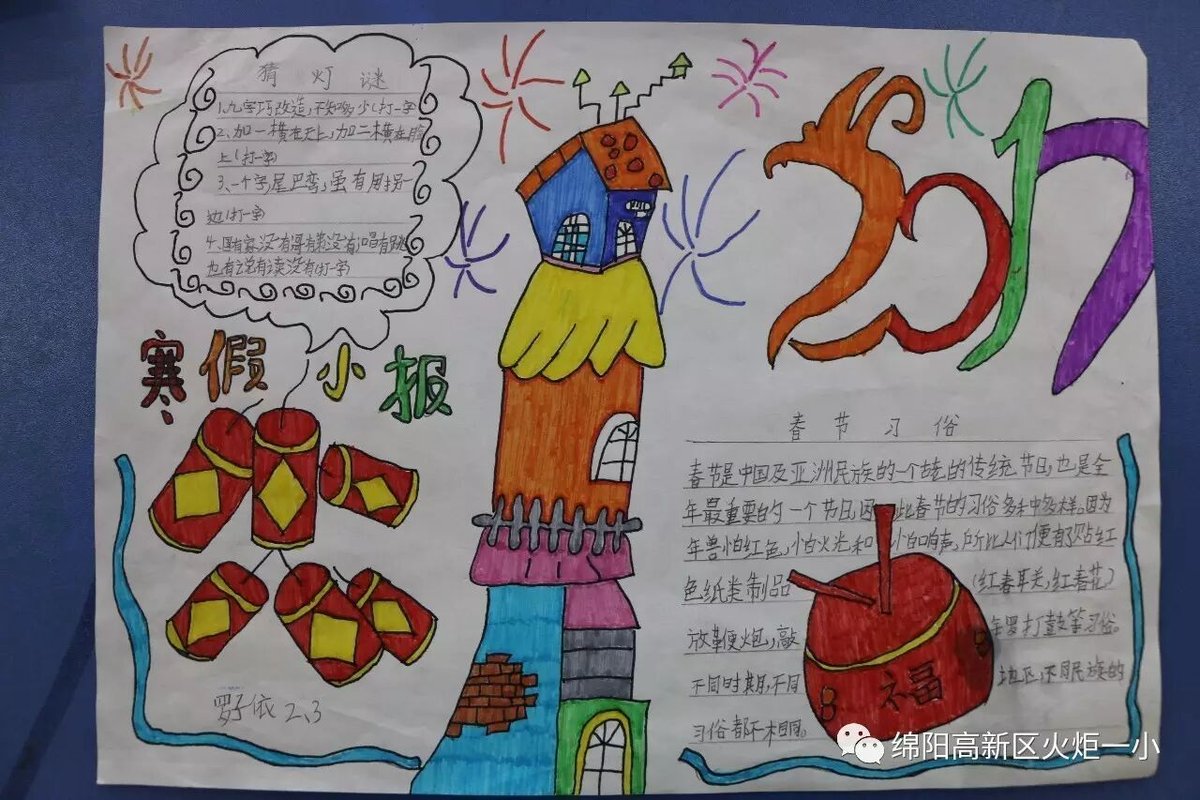 猜灯谜
1、九字巧改造,不知多少(打一字
2、加一横在天上,加二横在
上(打一字)
3、一个字尾巴弯,虽有用拐一
边(打一字
4、哥有
也有说有读没有(打一字)
寒假小报
2017
春节习俗
春节是中国及亚洲民族的一个古老的传统节日,也是全
年最重要的一个节日,因此春节的习俗多种多样。因为
年兽怕红色,怕火光和怕响声,所以人们便有了贴红
色纸类制品(红春联,红春花)
放鞭炮,敲锣打鼓等习俗。
不同时期,不同地区,不同民族的
习俗都不相同。
福
罗子依 2、3
绵阳高新区火炬一小